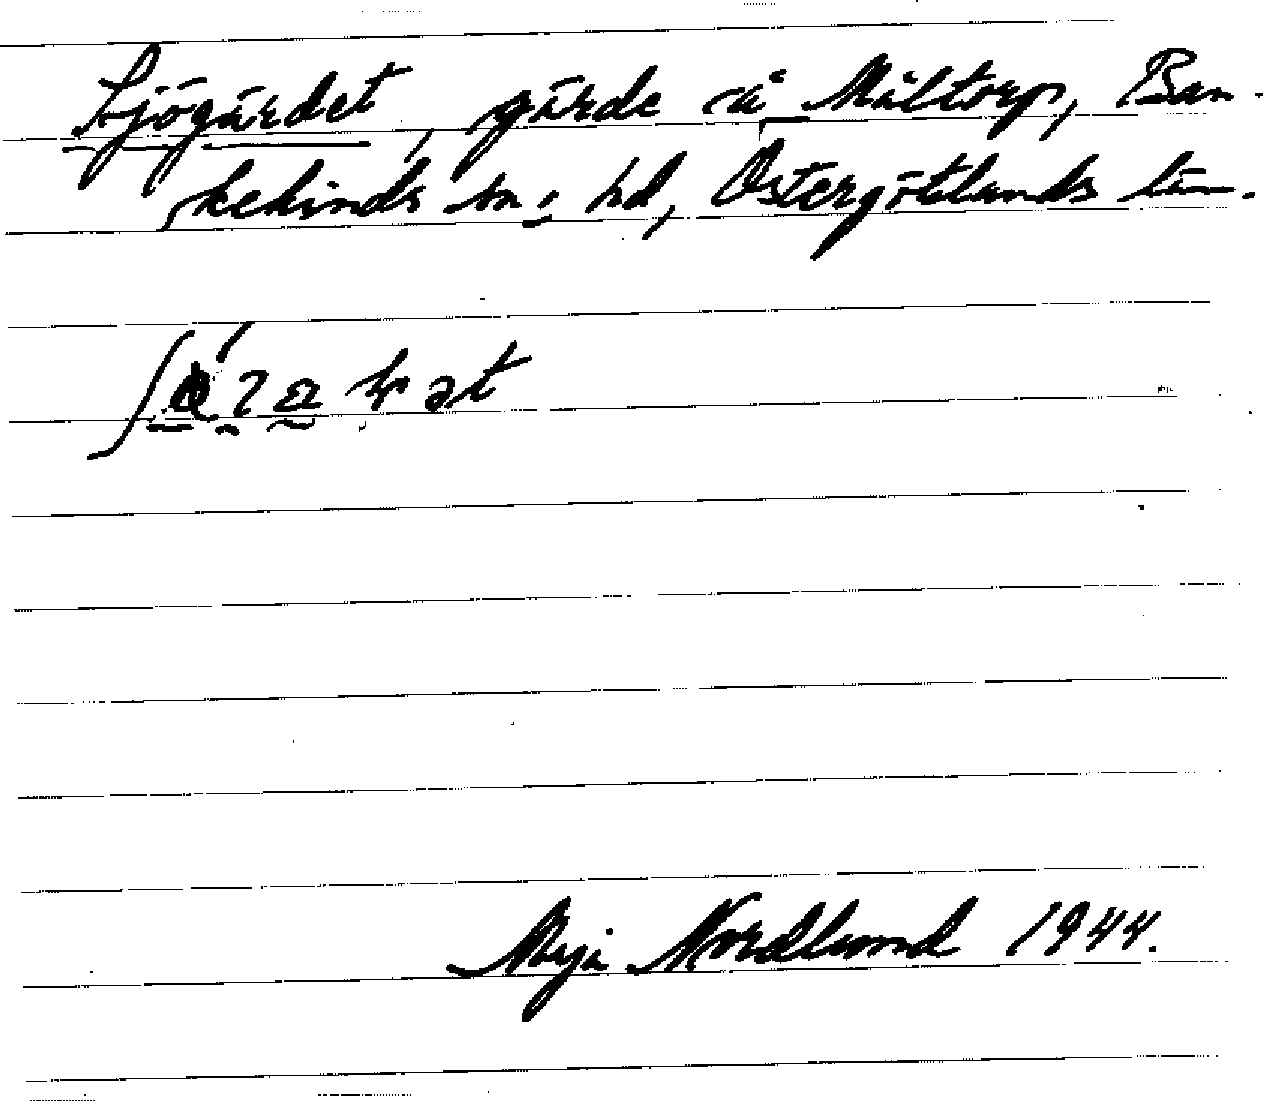 Sjögärdet, gärde å Måltorp, Ban-
kekinds sn; hd, Östergötlands län.
Nordlund 1944.